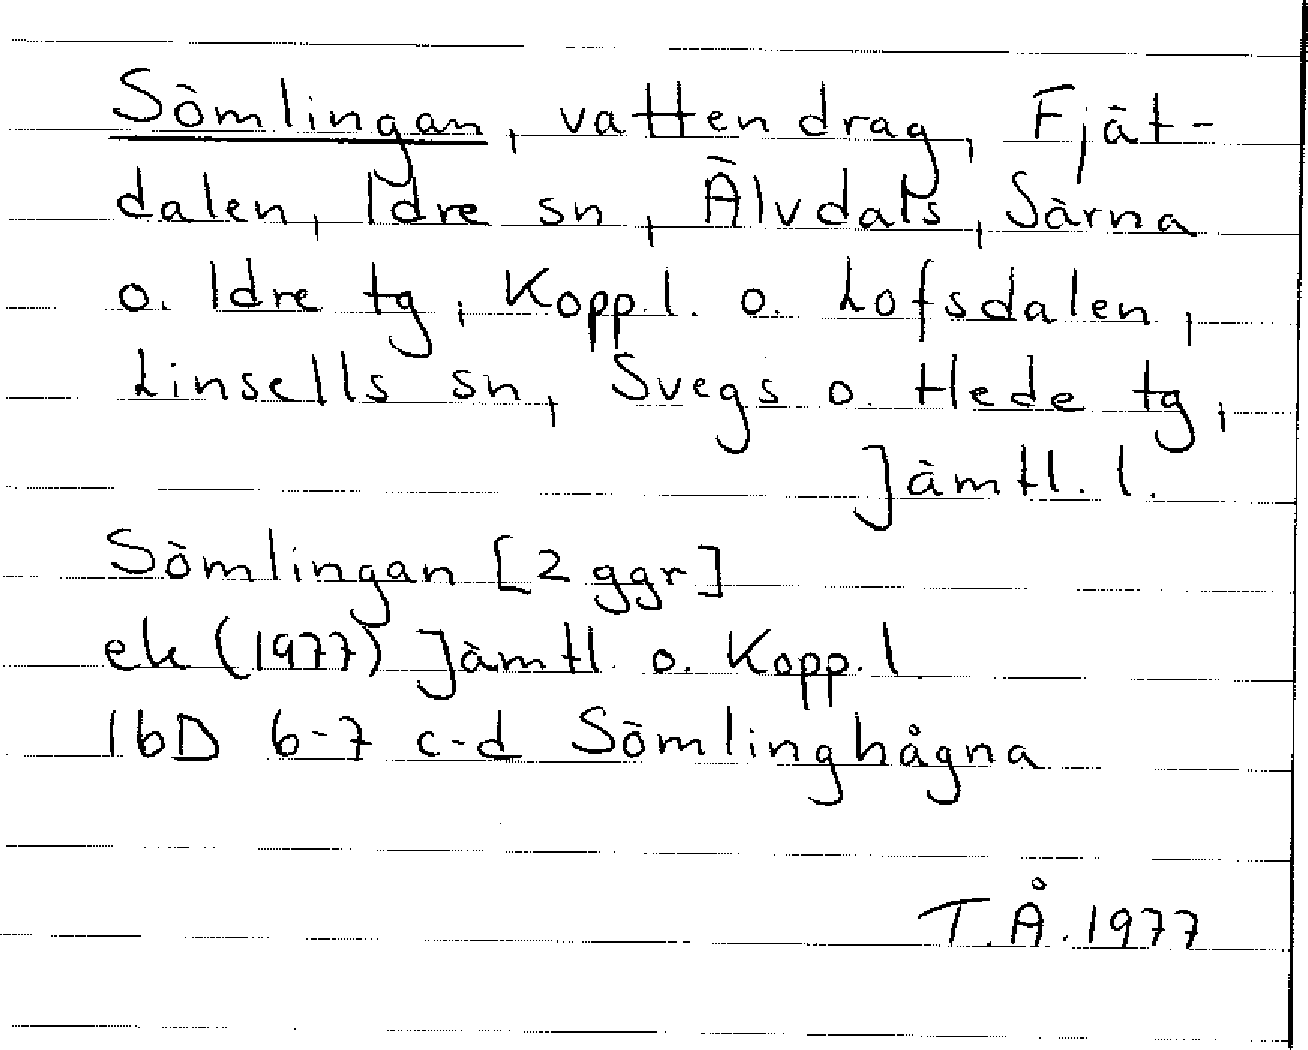 Sömlingan, vattendrag, Fjät-
dalen, Idre sn, Älvdals, Särna
o. Idre tg, Kopp.l. o. Lofsdalen,
Linsells sn, Svegs o. Hede tg,
Jämtl. l.
Sömlingan [2 ggr]
ek (1977) Jämtl. o. Kopp. l
16D 6-7 c-d Sömlinghågna
T.Å. 1977